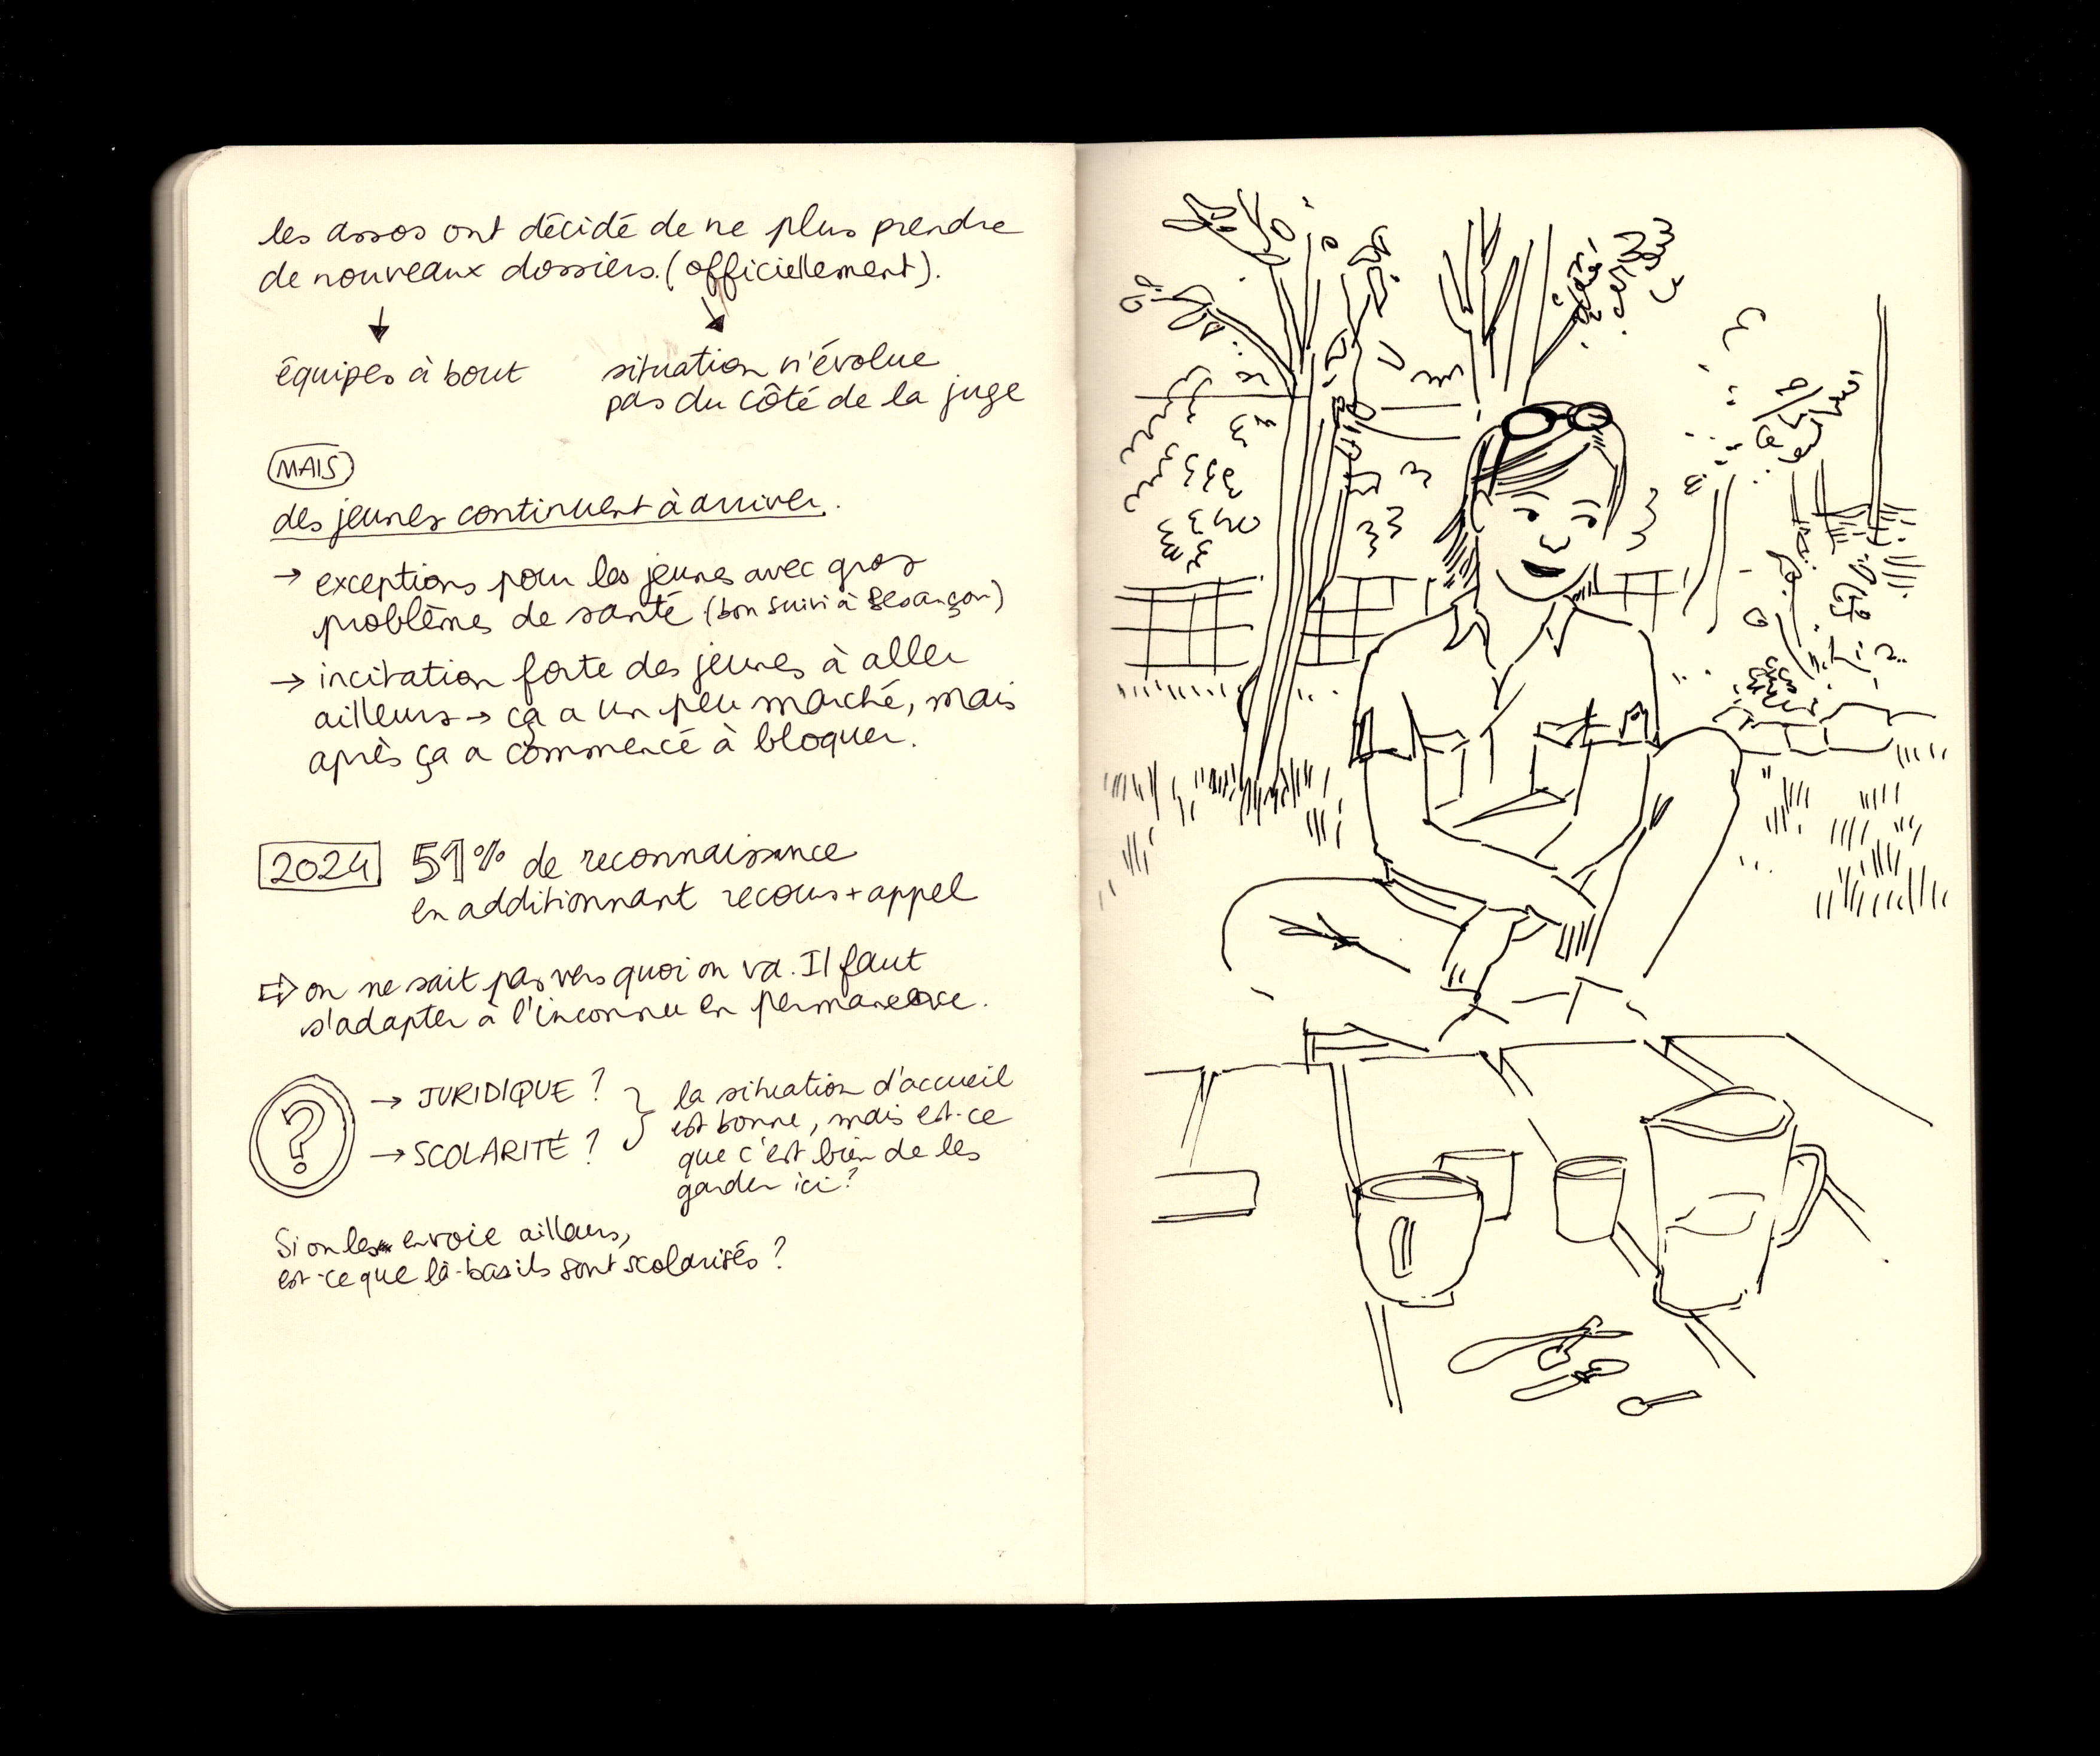 les assos ont décidé de ne plus prendre
de nouveaux dossiers. (officiellement).
équipes à bout
situation n'évolue
pas du côté de la juge
MAIS
des jeunes continuent à arriver.
→ exceptions pour les jeunes avec gros
problèmes de santé (bon suivi à Besançon)
→ incitation forte des jeunes à aller
ailleurs → ça a un peu marché, mais
après ça a commencé à bloquer.
2024 51% de reconnaissance
en additionnant recours + appel
⇨ on ne sait pas vers quoi on va. Il faut
s'adapter à l'inconnu en permanence.
? → JURIDIQUE ?
→ SCOLARITÉ ?
la situation d'accueil
est bonne, mais est-ce
que c'est bien de les
garder ici ?
Si on les envoie ailleurs,
est-ce que là-bas ils sont scolarisés ?